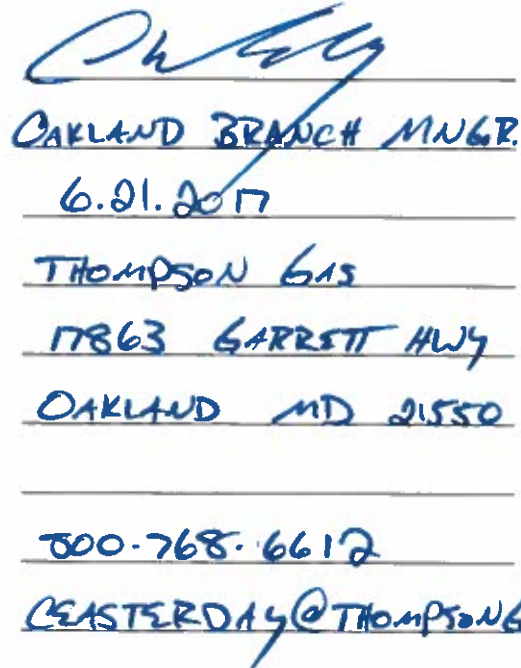 OAKLAND BRANCH MNGR.
6.21.2017
THOMPSON GAS
17863 GARRETT HWY
OAKLAND MD 21550
800-768-6612
CEASTERDAY@THOMPSONG